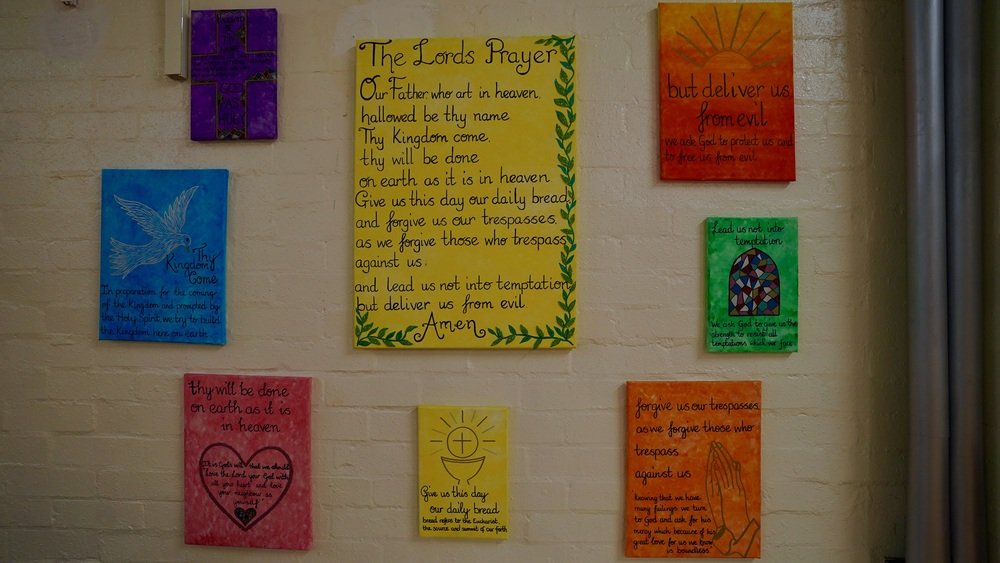 The Lords Prayer
Our Father who art in heaven,
hallowed be thy name
Thy Kingdom come,
thy will be done
on earth as it is in heaven
Give us this day our daily bread,
and forgive us our trespasses,
as we forgive those who trespass
against us,
and lead us not into temptation
but deliver us from evil
Amen
Thy
Kingdom
Come
In preparation for the coming
of the Kingdom and prompted by
the Holy Spirit, we try to build
the Kingdom here on earth
thy will be done
on earth as it is
in heaven
It is God's will that we should
"love the Lord your God with
all your heart and love
your neighbour as
yourself"
Give us this day
our daily bread
bread refers to the Eucharist,
the source and summit of our faith
forgive us our trespasses,
as we forgive those who
trespass
against us
Knowing that we have
many failings we turn
to God and ask for his
mercy which because of his
great love for us we know
is boundless"
Lead us not into
temptation
We ask God to give us the
strength to resist all
temptations which we face
but deliver us
from evil
we ask God to protect us and
to free us from evil